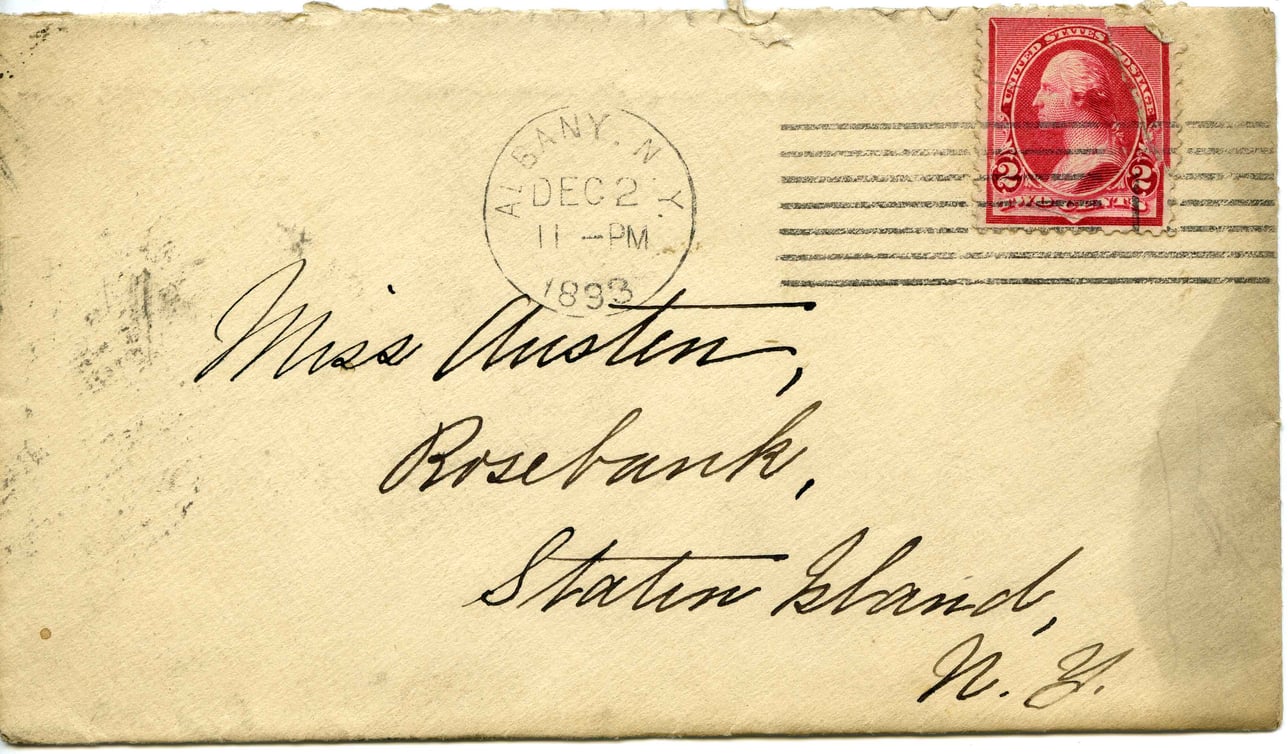 UNITED STATES POSTAGE
2 2
TWO CENTS
ALBANY, N.Y.
DEC 2
11 -PM
1893
Miss Austen,
Rosebank,
Staten Island,
N. Y.